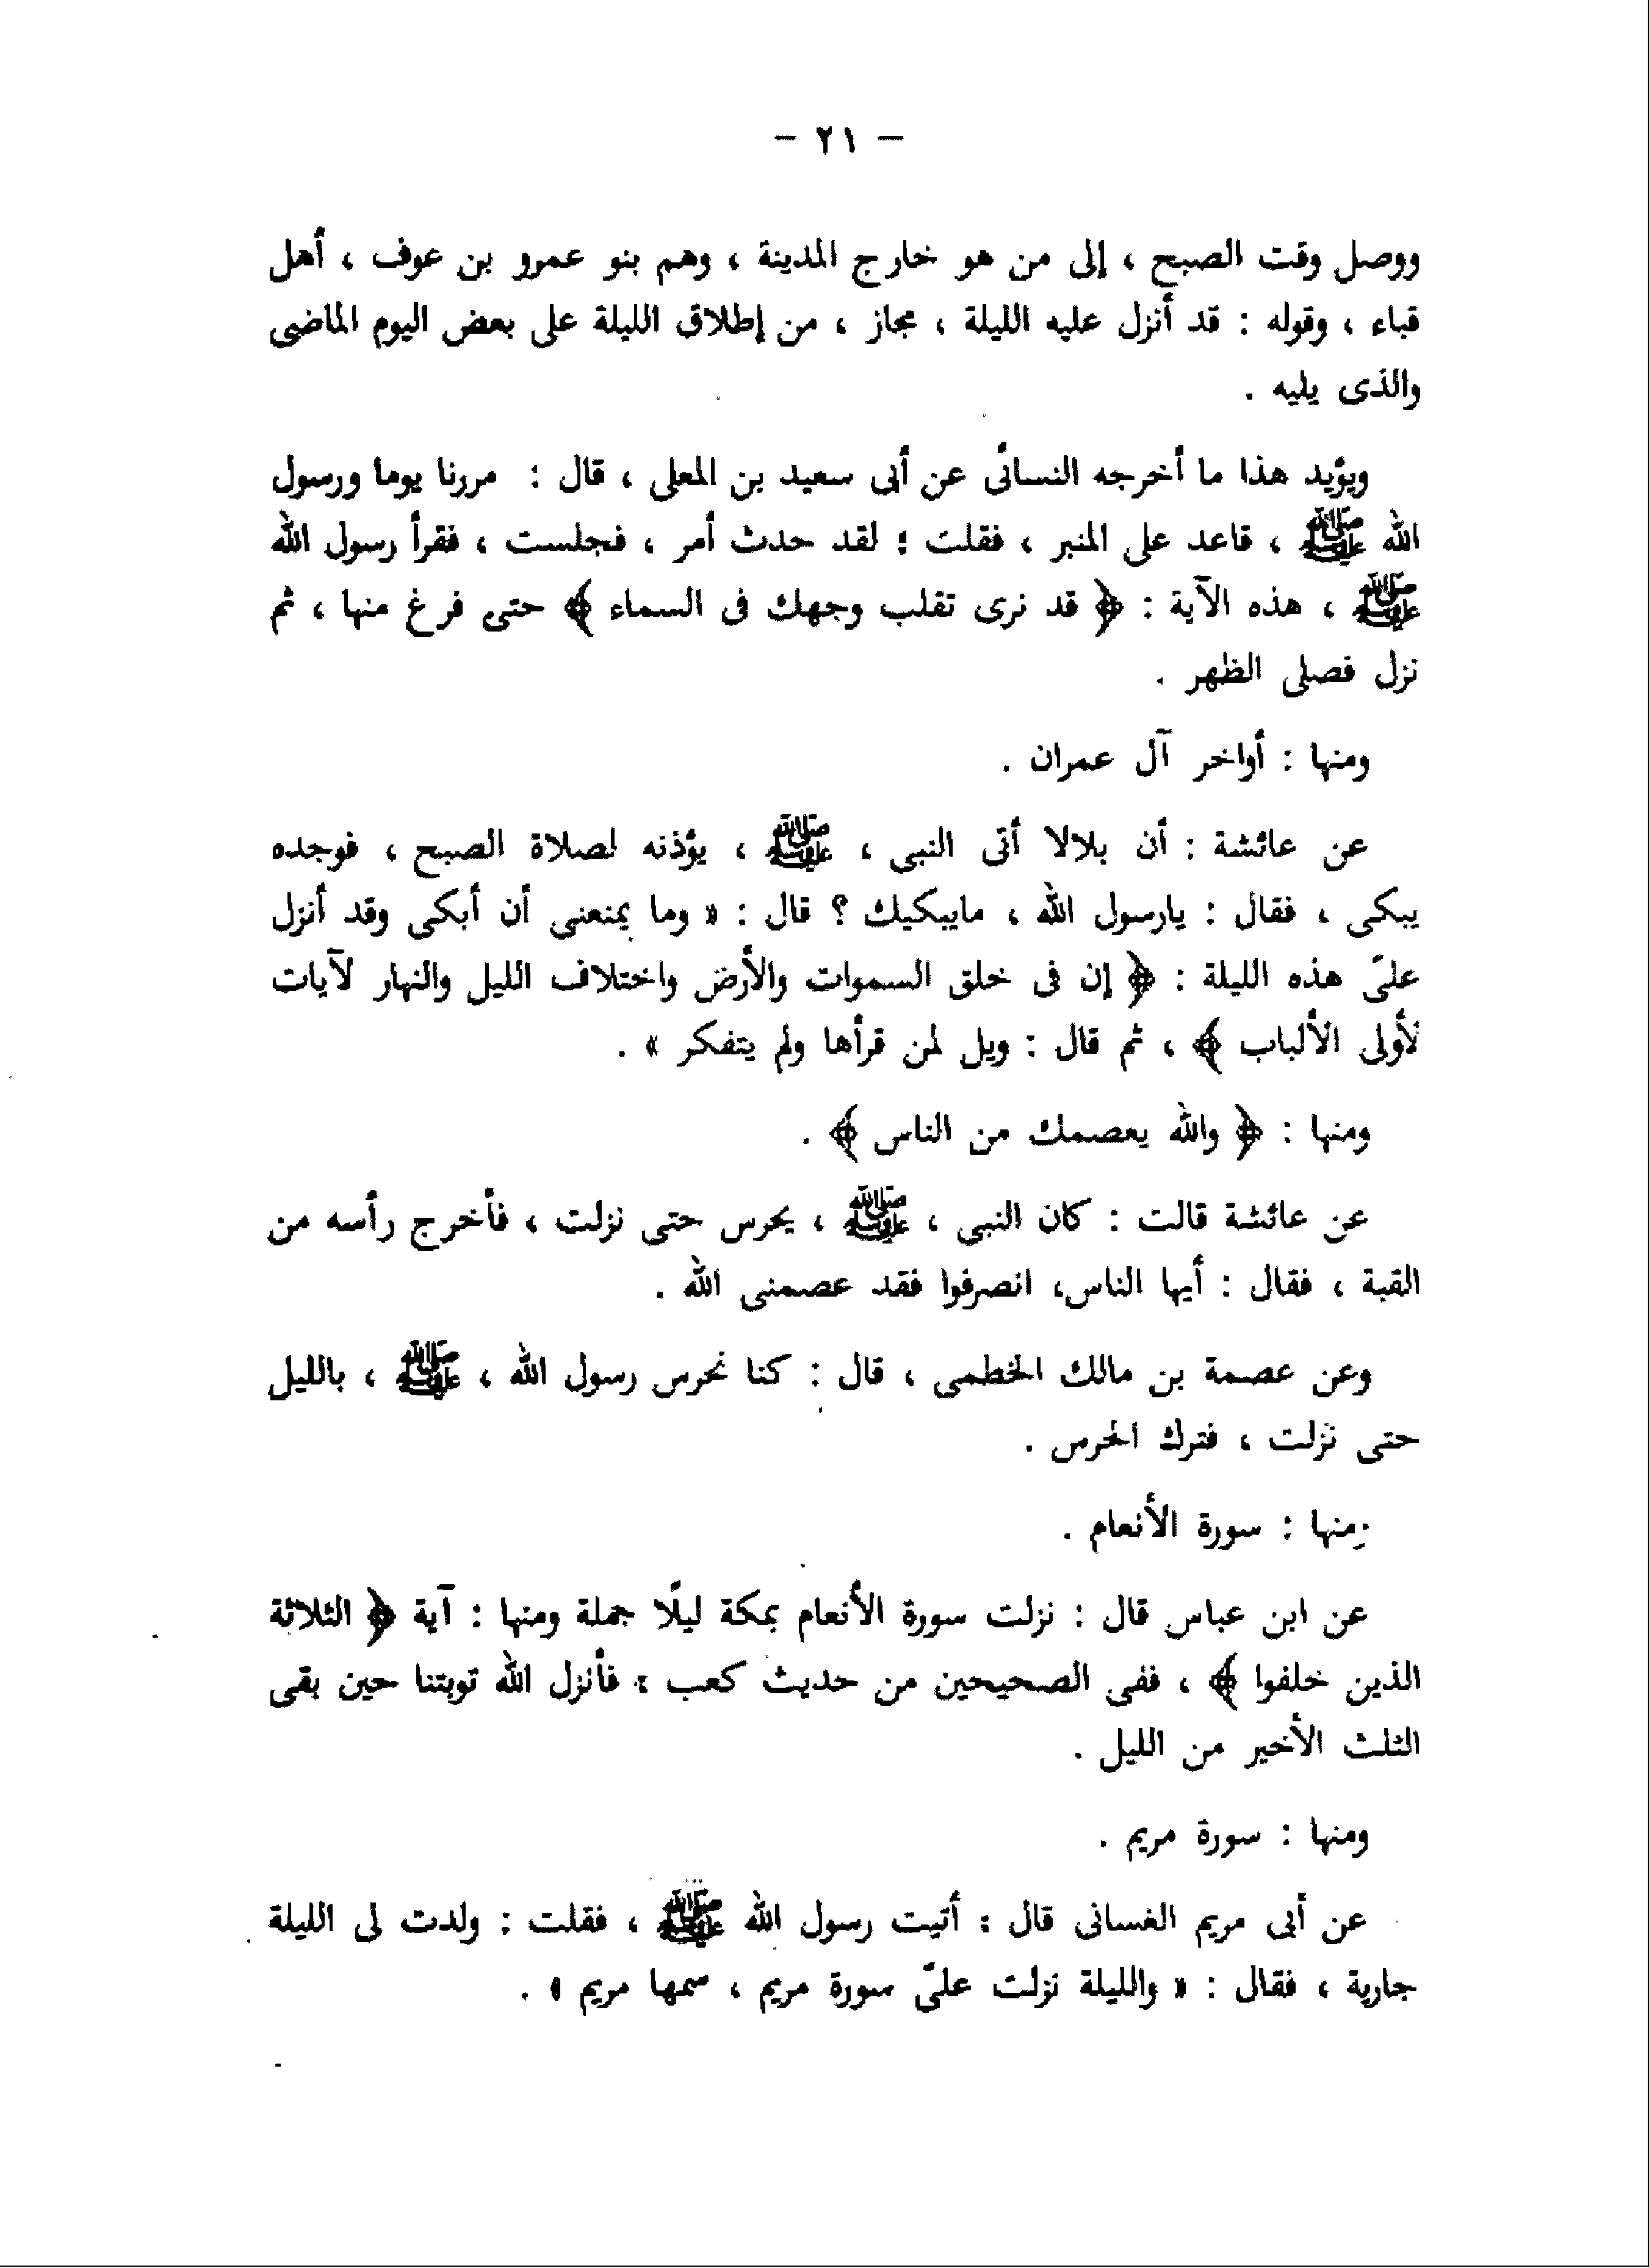 – ٢١ –
ووصل وقت الصبح ، إلى من هو خارج المدينة ، وهم بنو عمرو بن عوف ، أهل
قباء ، وقوله : قد أنزل عليه الليلة ، مجاز ، من إطلاق الليلة على بعض اليوم الماضى
والذى يليه .
ويؤيد هذا ما أخرجه النسائى عن أبى سعيد بن المعلى ، قال : مررنا يوما ورسول
الله ﷺ ، قاعد على المنبر ، فقلت : لقد حدث أمر ، فجلست ، فقرأ رسول الله
ﷺ ، هذه الآية : ﴿ قد نرى تقلب وجهك فى السماء ﴾ حتى فرغ منها ، ثم
نزل فصلى الظهر .
ومنها : أواخر آل عمران .
عن عائشة : أن بلالا أتى النبى ، ﷺ ، يؤذنه لصلاة الصبح ، فوجده
يبكى ، فقال : يارسول الله ، مايبكيك ؟ قال : « وما يمنعنى أن أبكى وقد أنزل
علىّ هذه الليلة : ﴿ إن فى خلق السموات والأرض واختلاف الليل والنهار لآيات
لأولى الألباب ﴾ ، ثم قال : ويل لمن قرأها ولم يتفكر » .
ومنها : ﴿ والله يعصمك من الناس ﴾ .
عن عائشة قالت : كان النبى ، ﷺ ، يحرس حتى نزلت ، فأخرج رأسه من
القبة ، فقال : أيها الناس، انصرفوا فقد عصمنى الله .
وعن عصمة بن مالك الخطمى ، قال : كنا نحرس رسول الله ، ﷺ ، بالليل
حتى نزلت ، فترك الحرس .
ومنها : سورة الأنعام .
عن ابن عباس قال : نزلت سورة الأنعام بمكة ليلًا جملة ومنها : آية ﴿ الثلاثة
الذين خلفوا ﴾ ، ففى الصحيحين من حديث كعب : فأنزل الله توبتنا حين بقى
الثلث الأخير من الليل .
ومنها : سورة مريم .
عن أبى مريم الغسانى قال : أتيت رسول الله ﷺ ، فقلت : ولدت لى الليلة
جارية ، فقال : « والليلة نزلت علىّ سورة مريم ، سمها مريم » .